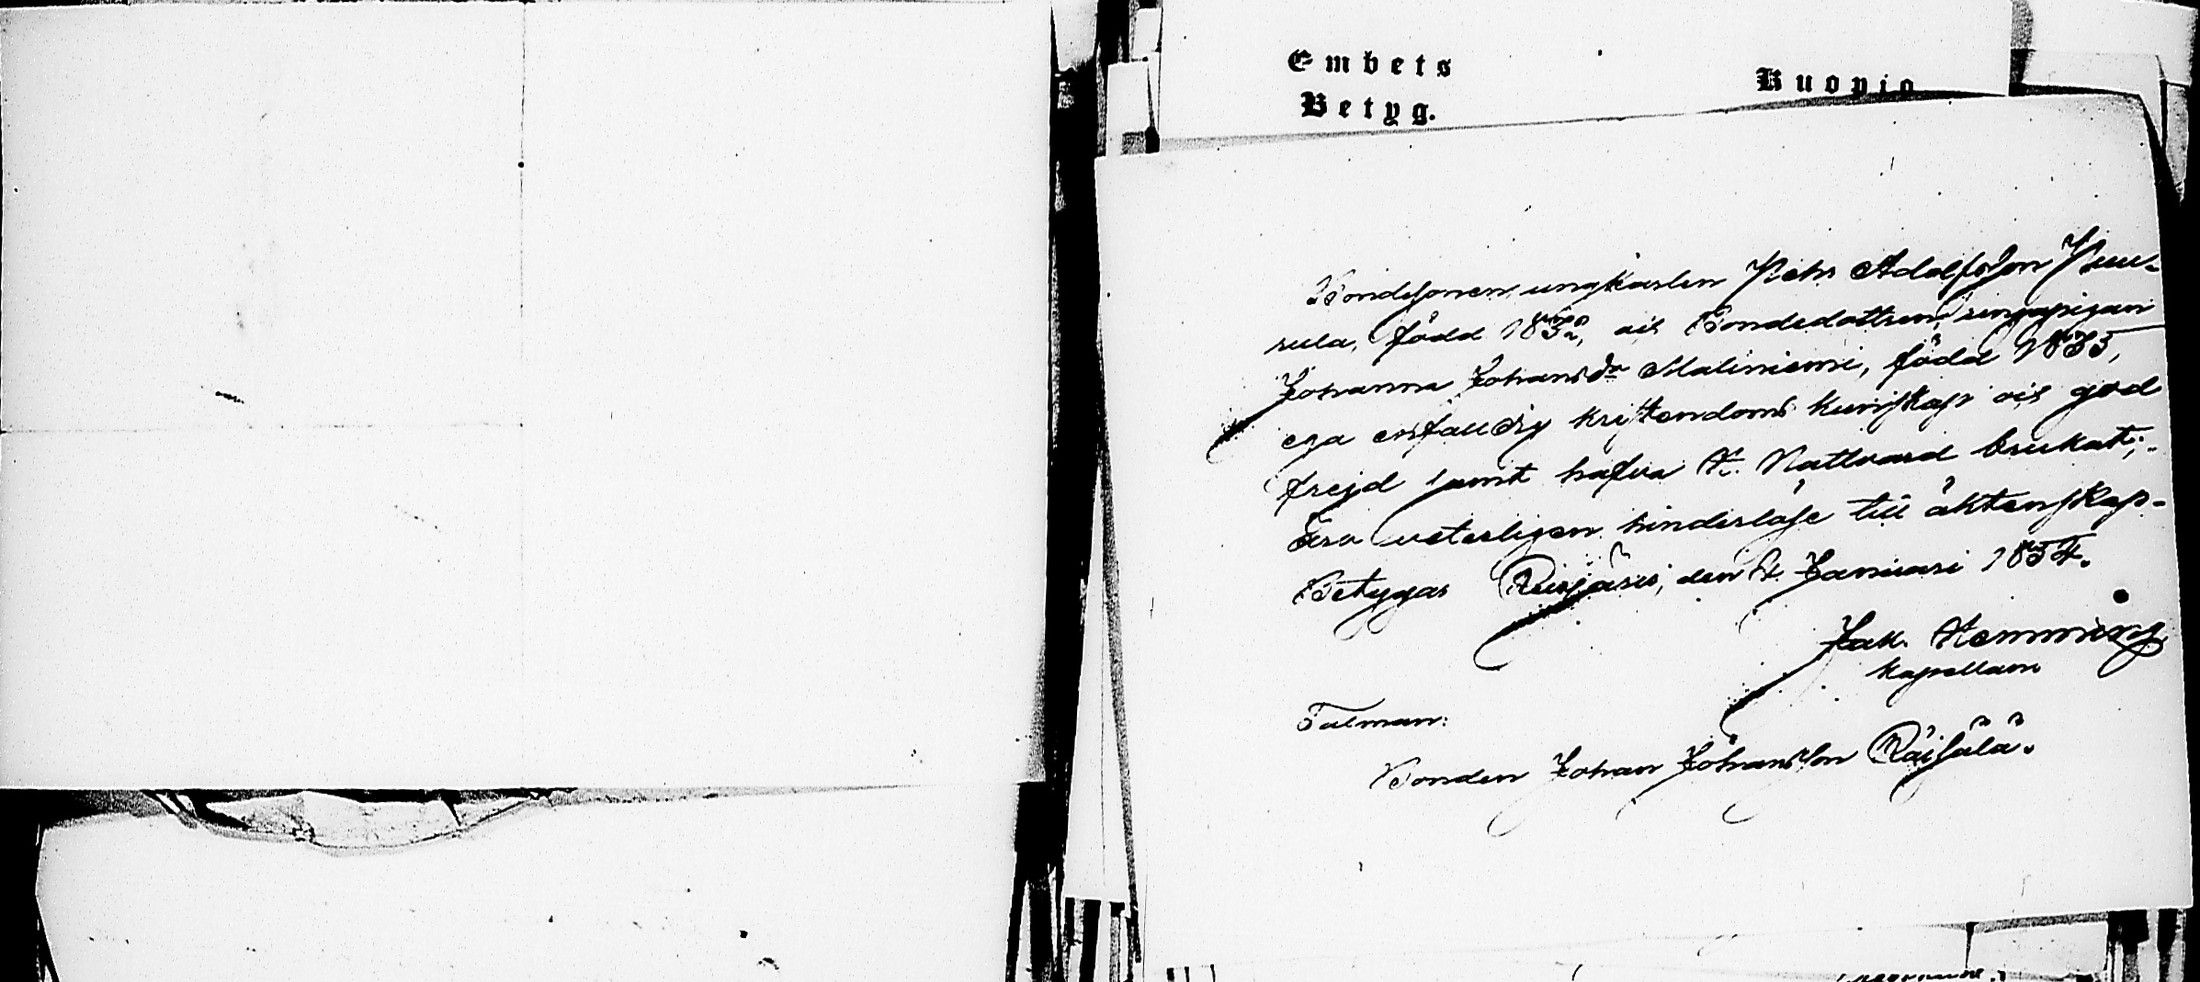 Embets
Betyg.
Kuopio
Bondesonen, ungkarlen Pehr Adolfsson Puu-
rula, född 1832, och Bondedottren, ungpigan
Johanna Johansdr Maliniemi, född 1835,
ega enfaldig kristendoms kunskap och god
frejd samt hafva H. Nattvard brukat;
Äro veterligen hinderlöse till äktenskap.
Betygas Reisjärvi, den 4 Januari 1854.
Jak. Hemming
Kapellan
Talman:
Bonden Johan Johansson Räisälä.